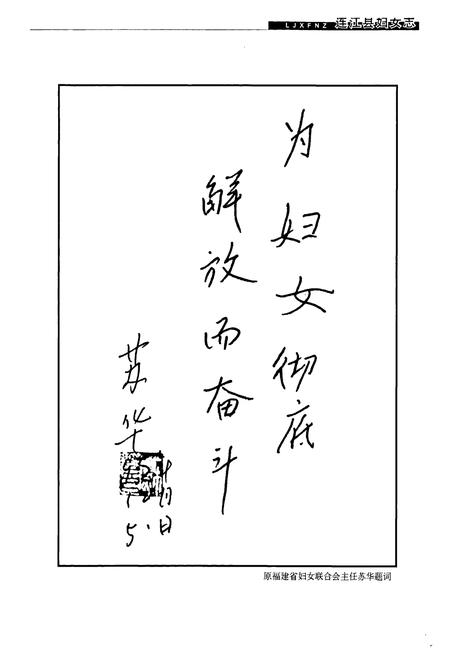 LJXFNZ 连江县妇女志
为妇女彻底
解放而奋斗
苏华
原福建省妇女联合会主任苏华题词